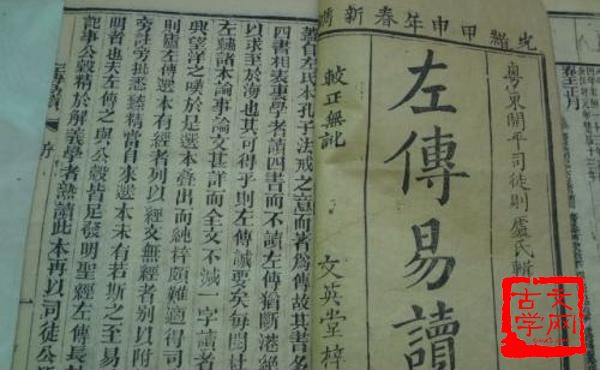 春王正月
光緒甲申年春新鐫
粵東開平司徒則廬氏輯
左傳易讀
較正無訛
文英堂梓
蓋自左氏本孔子法戒之意而著為傳故其書名
四書相表裏學者讀四書而不讀左傳猶斷港絕
以求至於海也其可得乎則左傳誠要矣每閱杜
左繡諸本論事論文甚詳而全文不減一字讀者
興望洋之嘆於是選本疊出而純粹頗難適得司
則廬左傳選本有經者列以經文無經者别以附
旁註旁批悉臻精當自來選本未有若斯之至易
明者也夫左傳之與公穀皆足發明聖經左傳長於
記事公穀精於解義學者熟讀此本再以司徒公
左傳易讀 序 一
古文学网